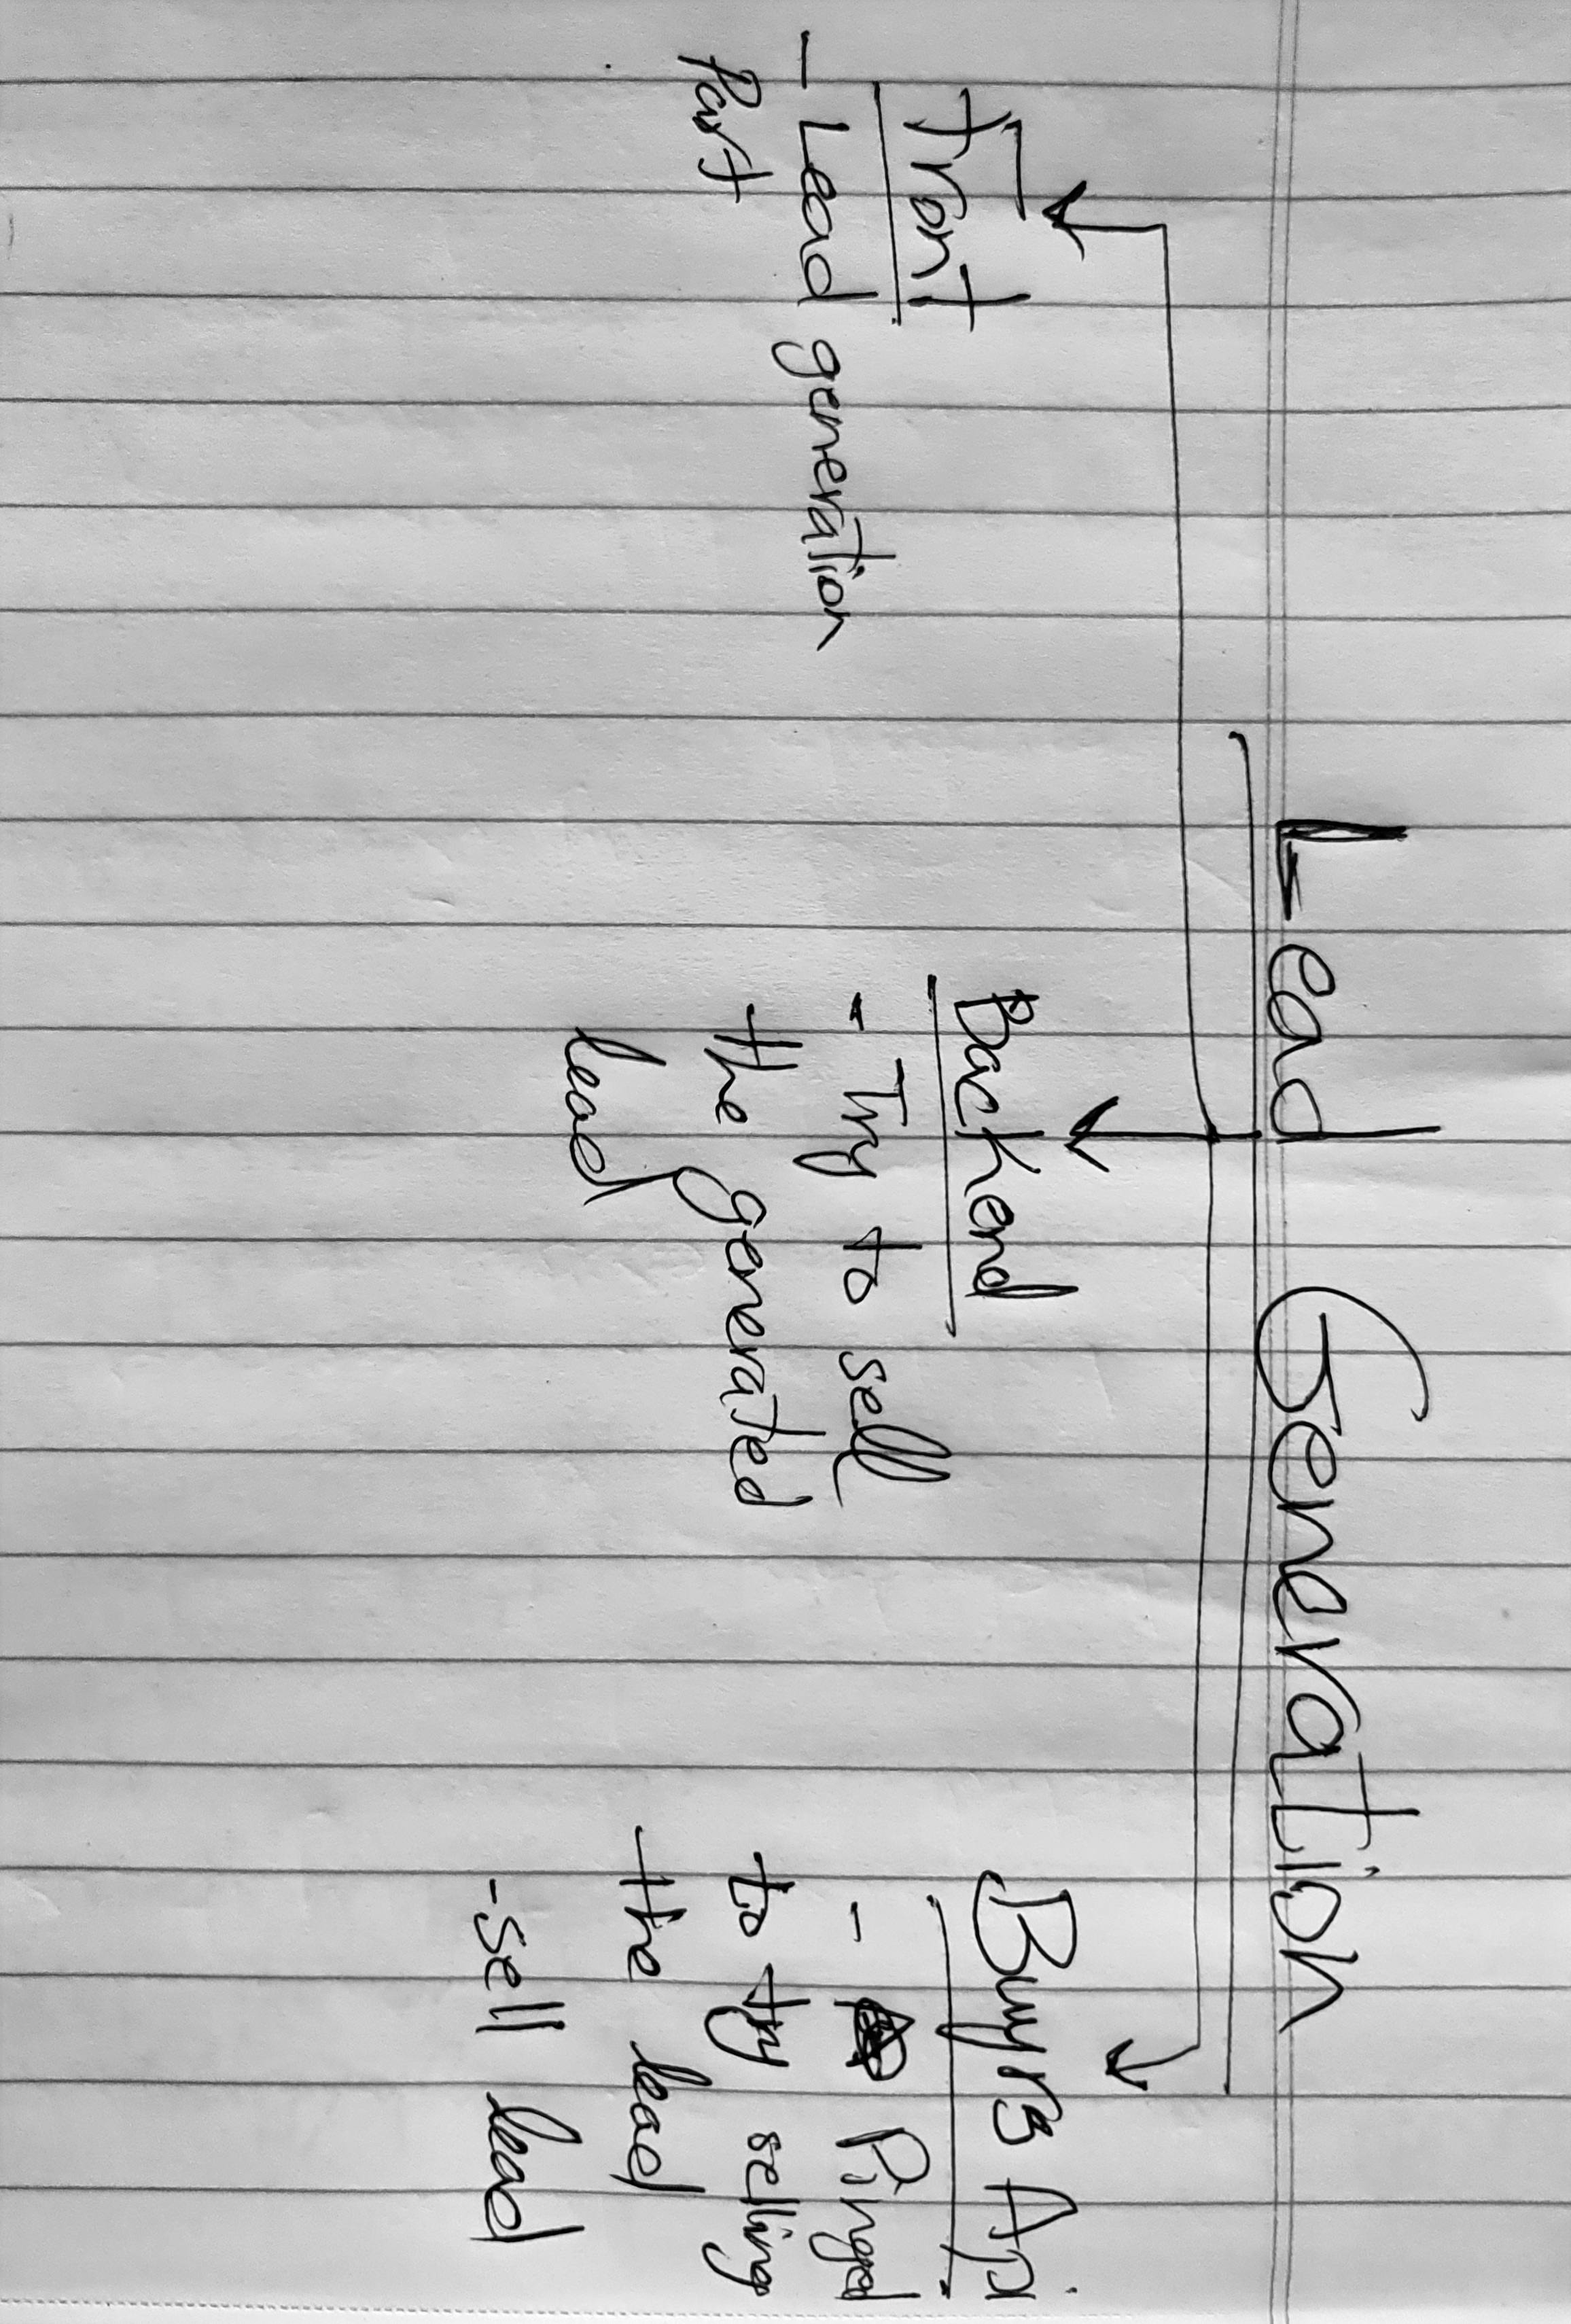 Lead Generation
Front
- Lead generation
Part
Backend
- Try to sell
the generated
lead
Buyrs Api
- Pinged
to try selling
the lead
- sell lead